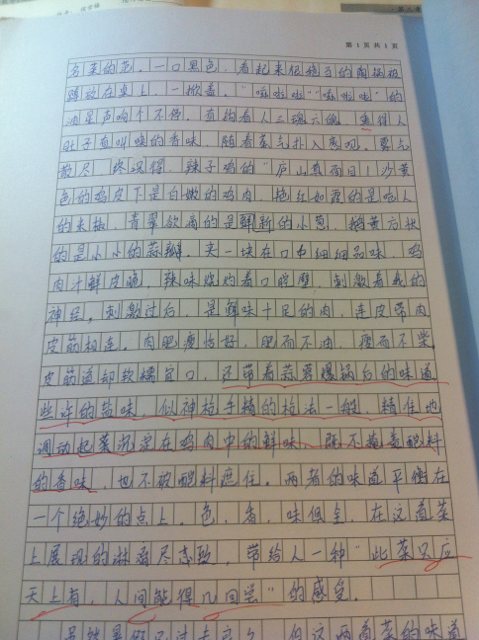 第1页共1页
色，看起来
蹲放在桌上，一掀盖，“嗞啦啦”“嗞啦啦”的
油星声响个不停，直钩着人三魂六魄，惹得人
肚子直叫唤的香味，随着蒸气扑入鼻腔，雾气
散尽，终识得，辣子鸡的“庐山真面目”，沙黄
色的鸡皮下是白嫩的鸡肉，艳红如霞的是呛人
的米椒，青翠欲滴的是鲜新的小葱，鹅黄方状
的是小小的蒜瓣，夹一块在口中细细品味，鸡
肉汁鲜皮脆，辣味烧灼着口腔壁，刺激着我的
神经。刺激过后，是鲜味十足的肉，连皮带肉
皮筋相连。肉肥瘦恰好，肥而不油，瘦而不柴
皮筋适却软糯宜口，还带着蒜蓉爆锅后的味道
些许的盐味，似神枪手精的枪法一般，精准地
调动起菜沉淀在鸡肉中的鲜味，既不掩盖配料
的香味，也不被配料遮住。两者的味道平衡在
一个绝妙的点上。色，香，味俱全，在这道菜
上展现的淋漓尽态致，带给人一种“此菜只应
天上有，人间能得几回尝”的感受。
这两道菜的味道